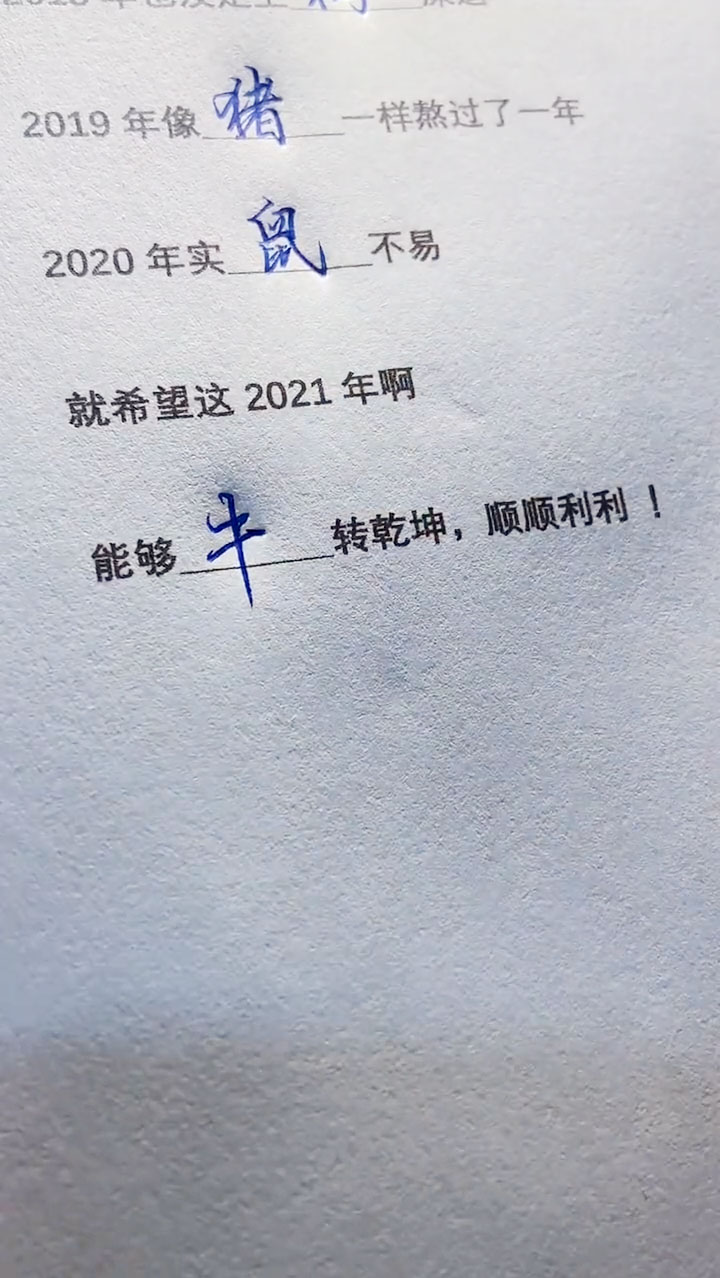 2019 年像猪一样熬过了一年
2020 年实鼠不易
就希望这 2021 年啊
能够牛转乾坤，顺顺利利！